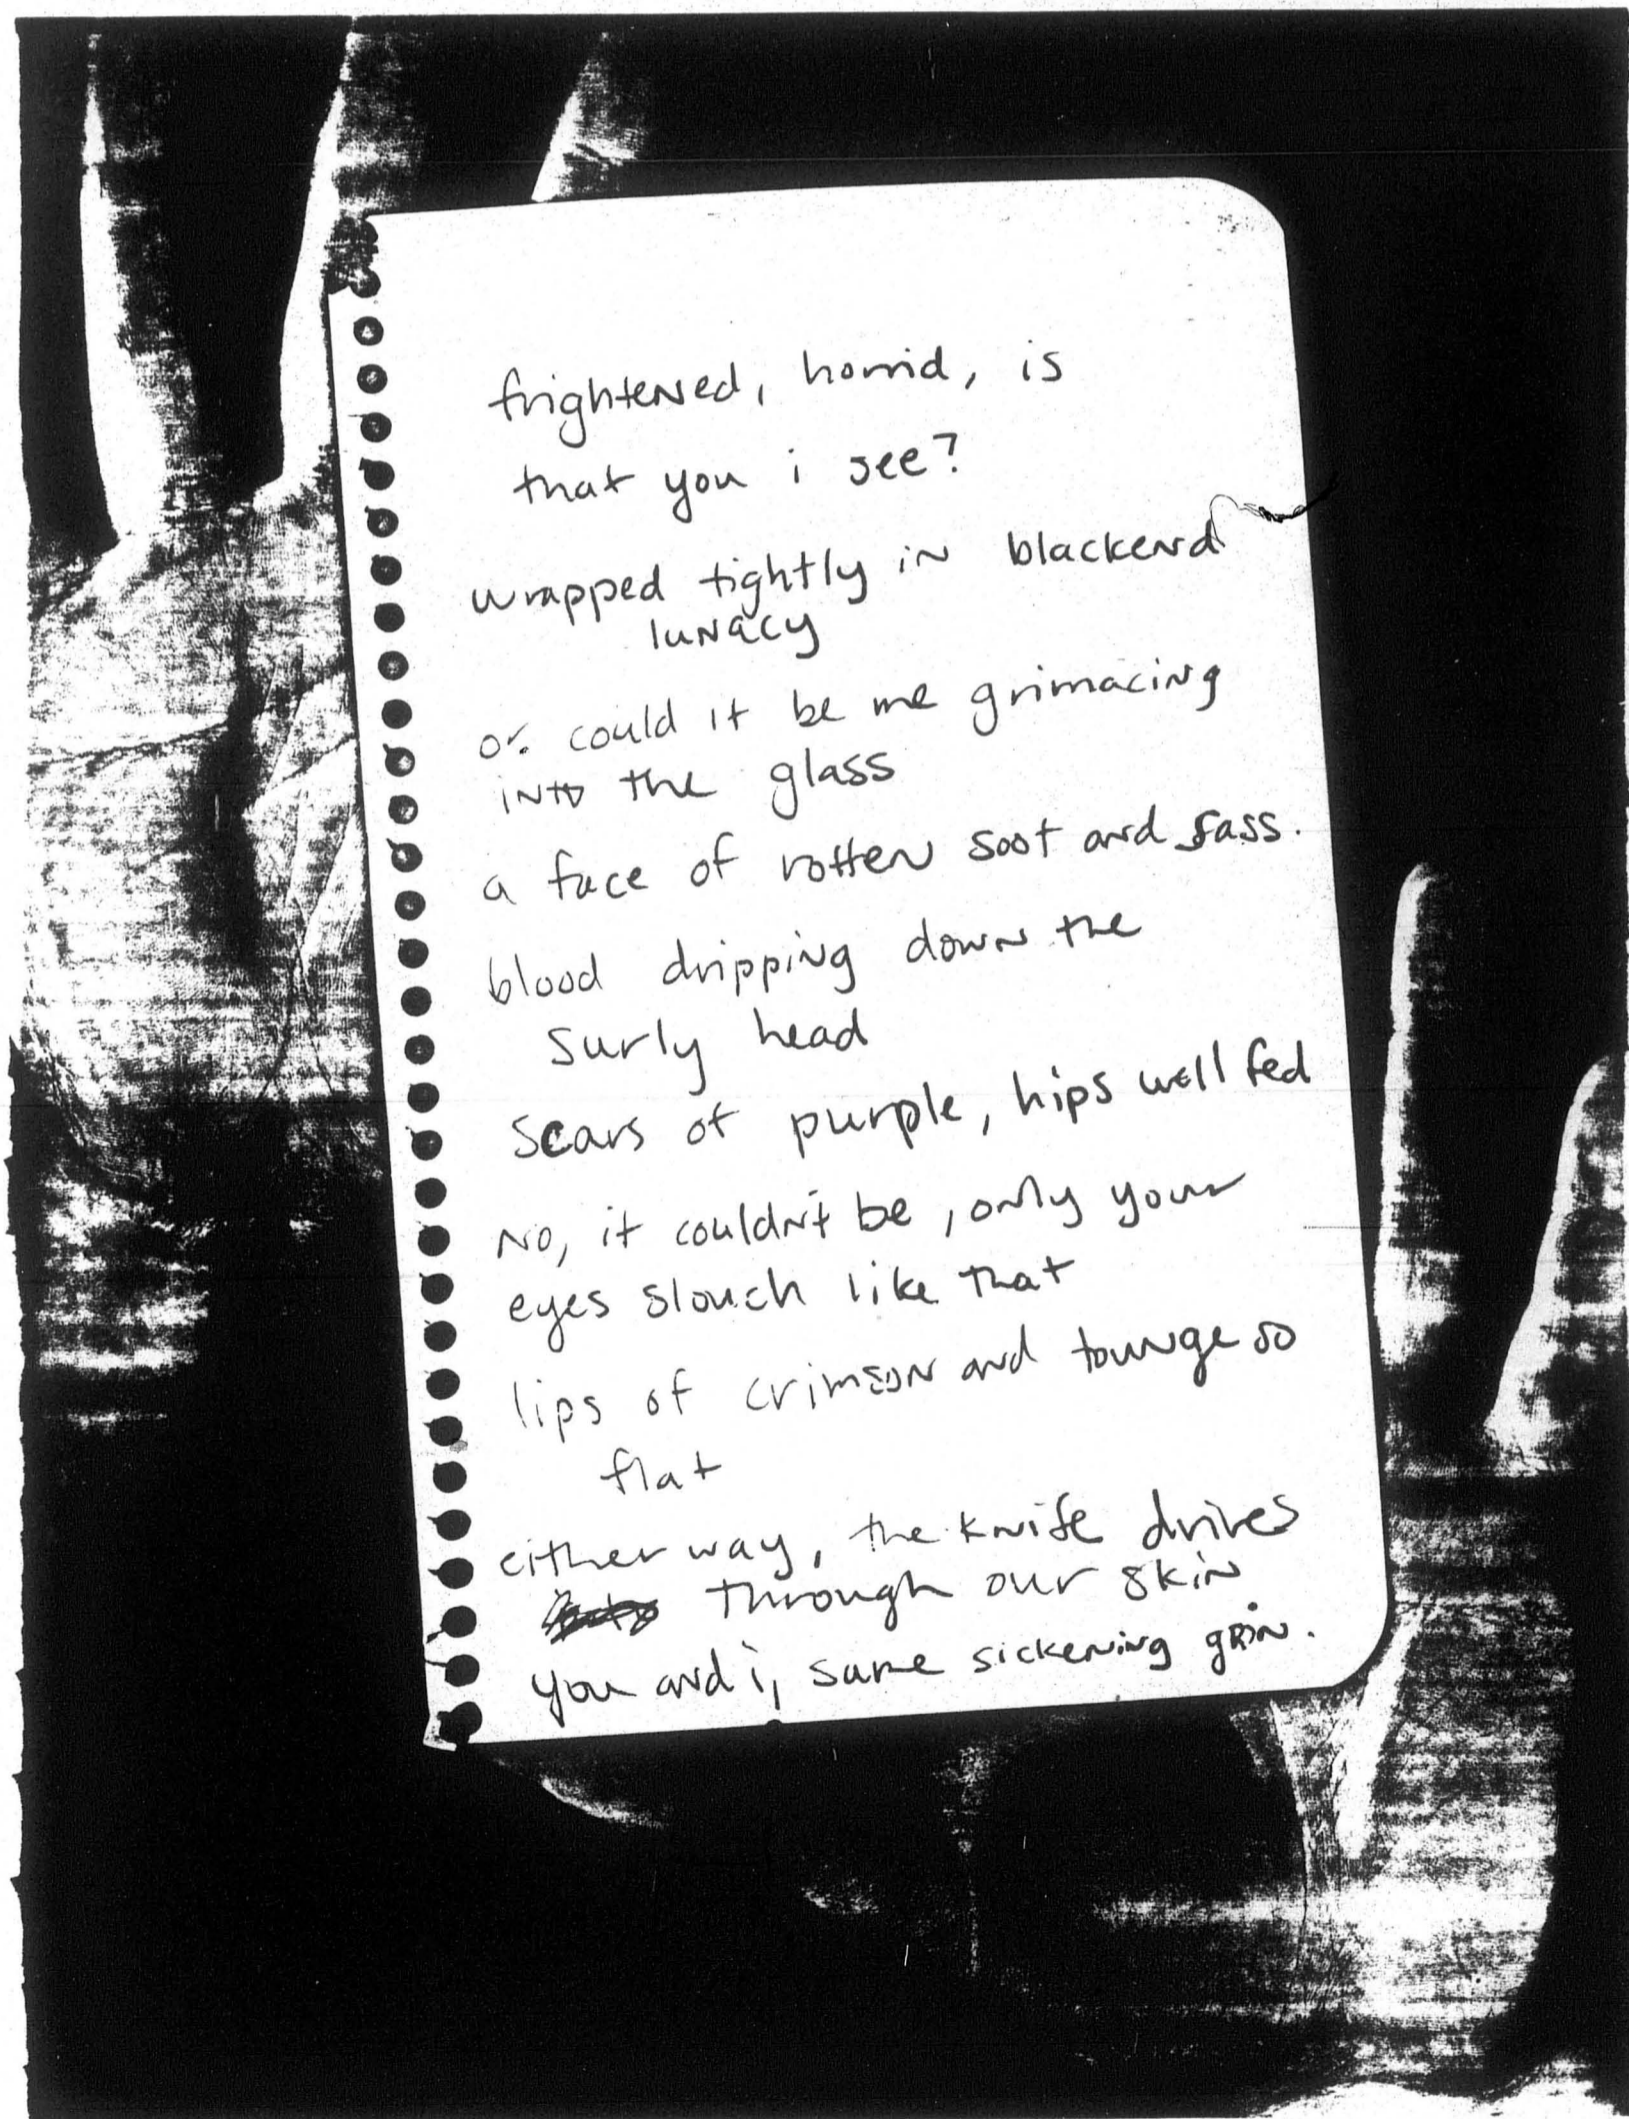 frightened, horrid, is
that you i see?
wrapped tightly in blackend
lunacy
or could it be me grimacing
into the glass
a face of rotten soot and sass.
blood dripping down the
surly head
scars of purple, hips well fed
No, it couldn't be, only your
eyes slouch like that
lips of crimson and tounge so
flat
either way, the knife drives
through our skin
you and i, same sickening grin.